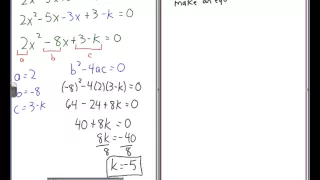 2x² - 5x - 3x + 3 - k = 0
2x² - 8x + 3 - k = 0
a b c
a = 2
b = -8
c = 3 - k
b² - 4ac = 0
(-8)² - 4(2)(3-k) = 0
64 - 24 + 8k = 0
40 + 8k = 0
8k = -40
8 8
k = -5
make an eq